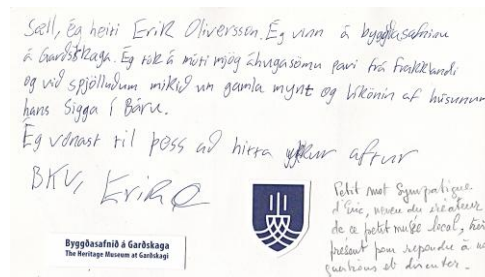 Sæll, ég heiti Erik Oliversson. Ég vinn á byggðasafninu
á Garðskaga. Ég tók á móti mjög áhugasömu pari frá Frakklandi
og við spjölluðum mikið um gamla mynt og líkönin af húsunum
hans Sigga í Báru.
Ég vonast til þess að hitta ykkur aftur
BKV, Erik O
Byggðasafnið á Garðskaga
The Heritage Museum at Garðskagi
Petit mot sympatique
d'Eric, neveu du créateur
de ce petit musée local, très
présent pour repondre à nos
questions et discuter.